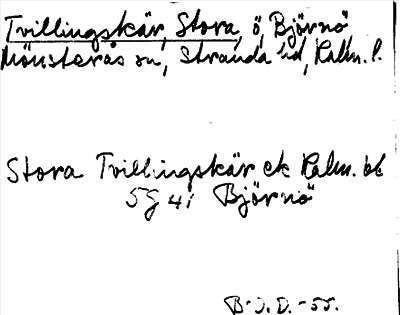 Tvillingskär, Stora, ö, Björnö
Mönsterås sn, Stranda hd, Kalm. l.
Stora Tvillingskär ek Kalm. bl
5G 4i Björnö
B-J.D. -55.